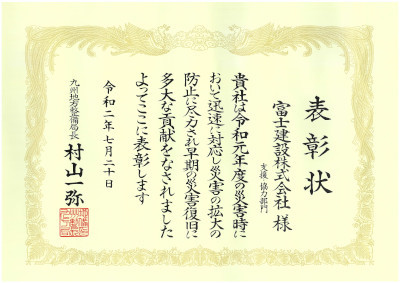 表彰状
支援 協力部門
富士建設株式会社 様
貴社は令和元年度の災害時に
おいて迅速に対応し災害の拡大の
防止に尽力され早期の災害復旧に
多大な貢献をなされました
よってここに表彰します
令和二年七月二十日
九州地方整備局長
村山一弥